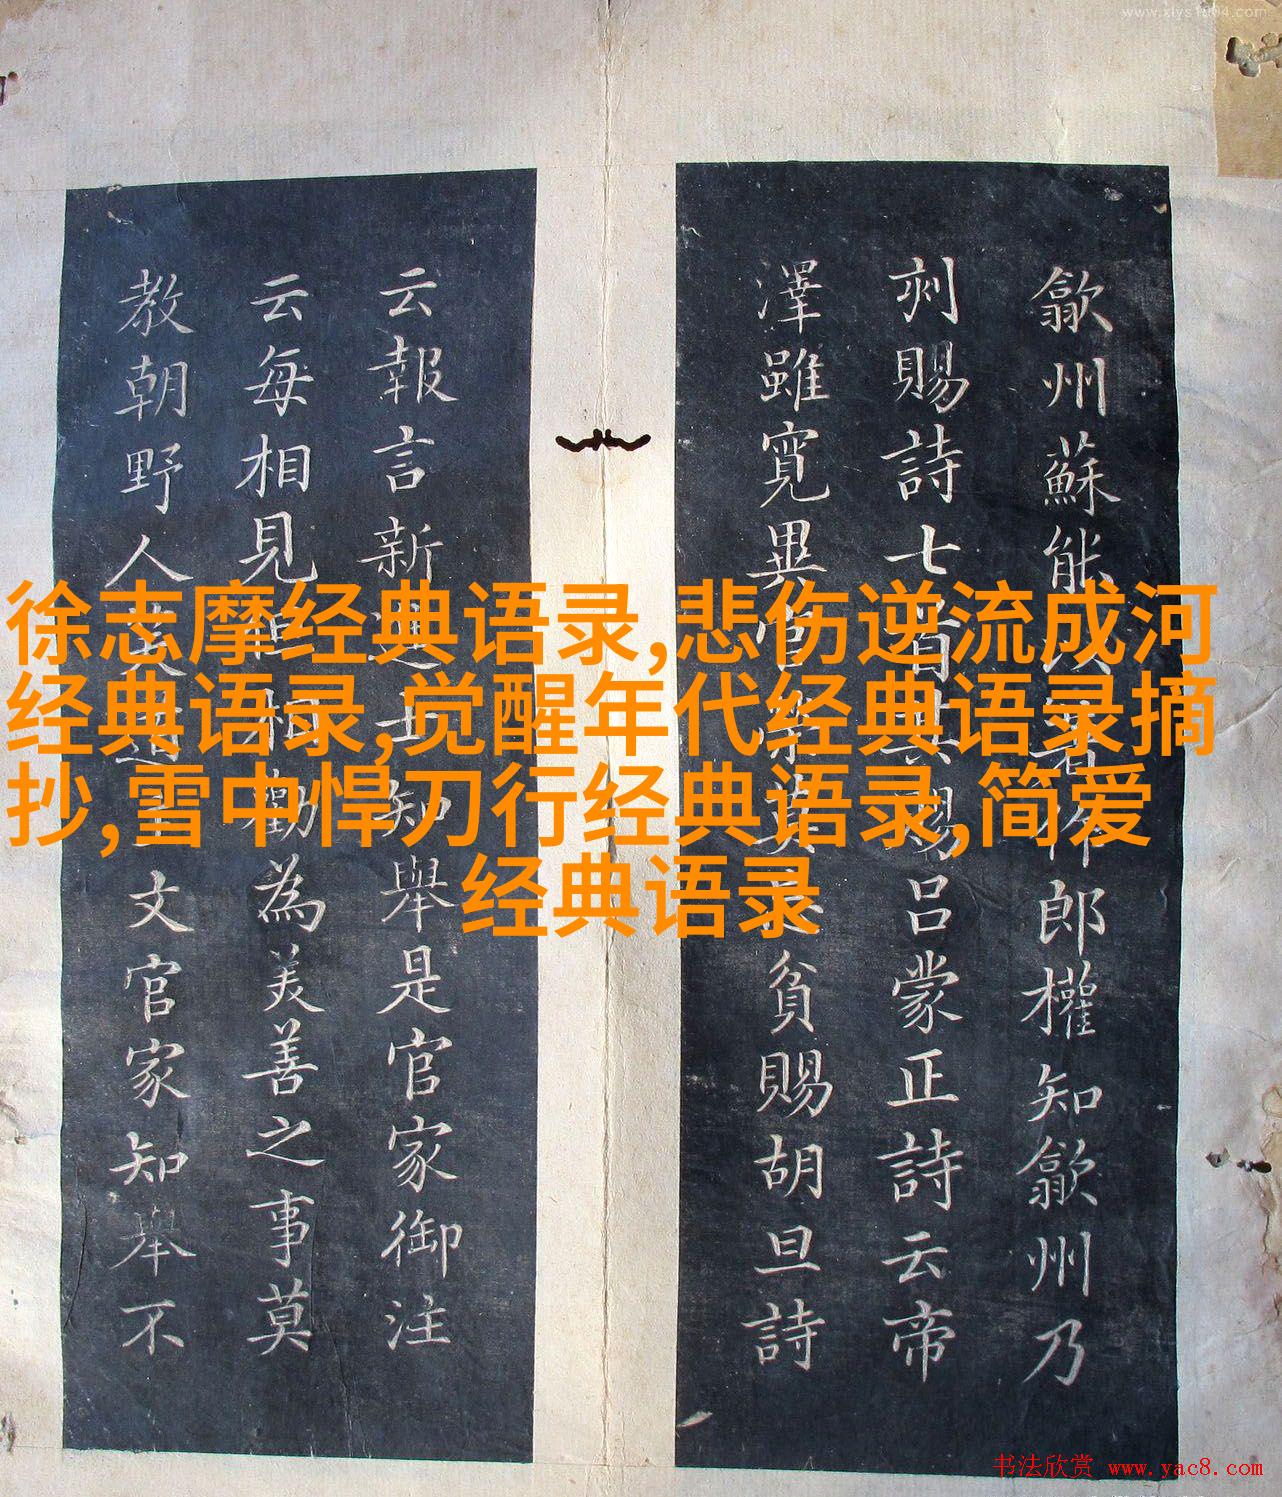 www.xlys1904.com
歙州蘇能以著作郎權知歙州乃
刾賜詩七首其賜吕蒙正詩云帝
澤雖寬畢官貧賜胡旦詩
云報言新進士知舉是官家御注
云每相見但相勸為美善之事莫
教朝野人笑道文官家知舉不
徐志摩经典语录,悲伤逆流成河
经典语录,觉醒年代经典语录摘
抄,雪中悍刀行经典语录,简爱
经典语录
书法欣赏 www.yac8.com